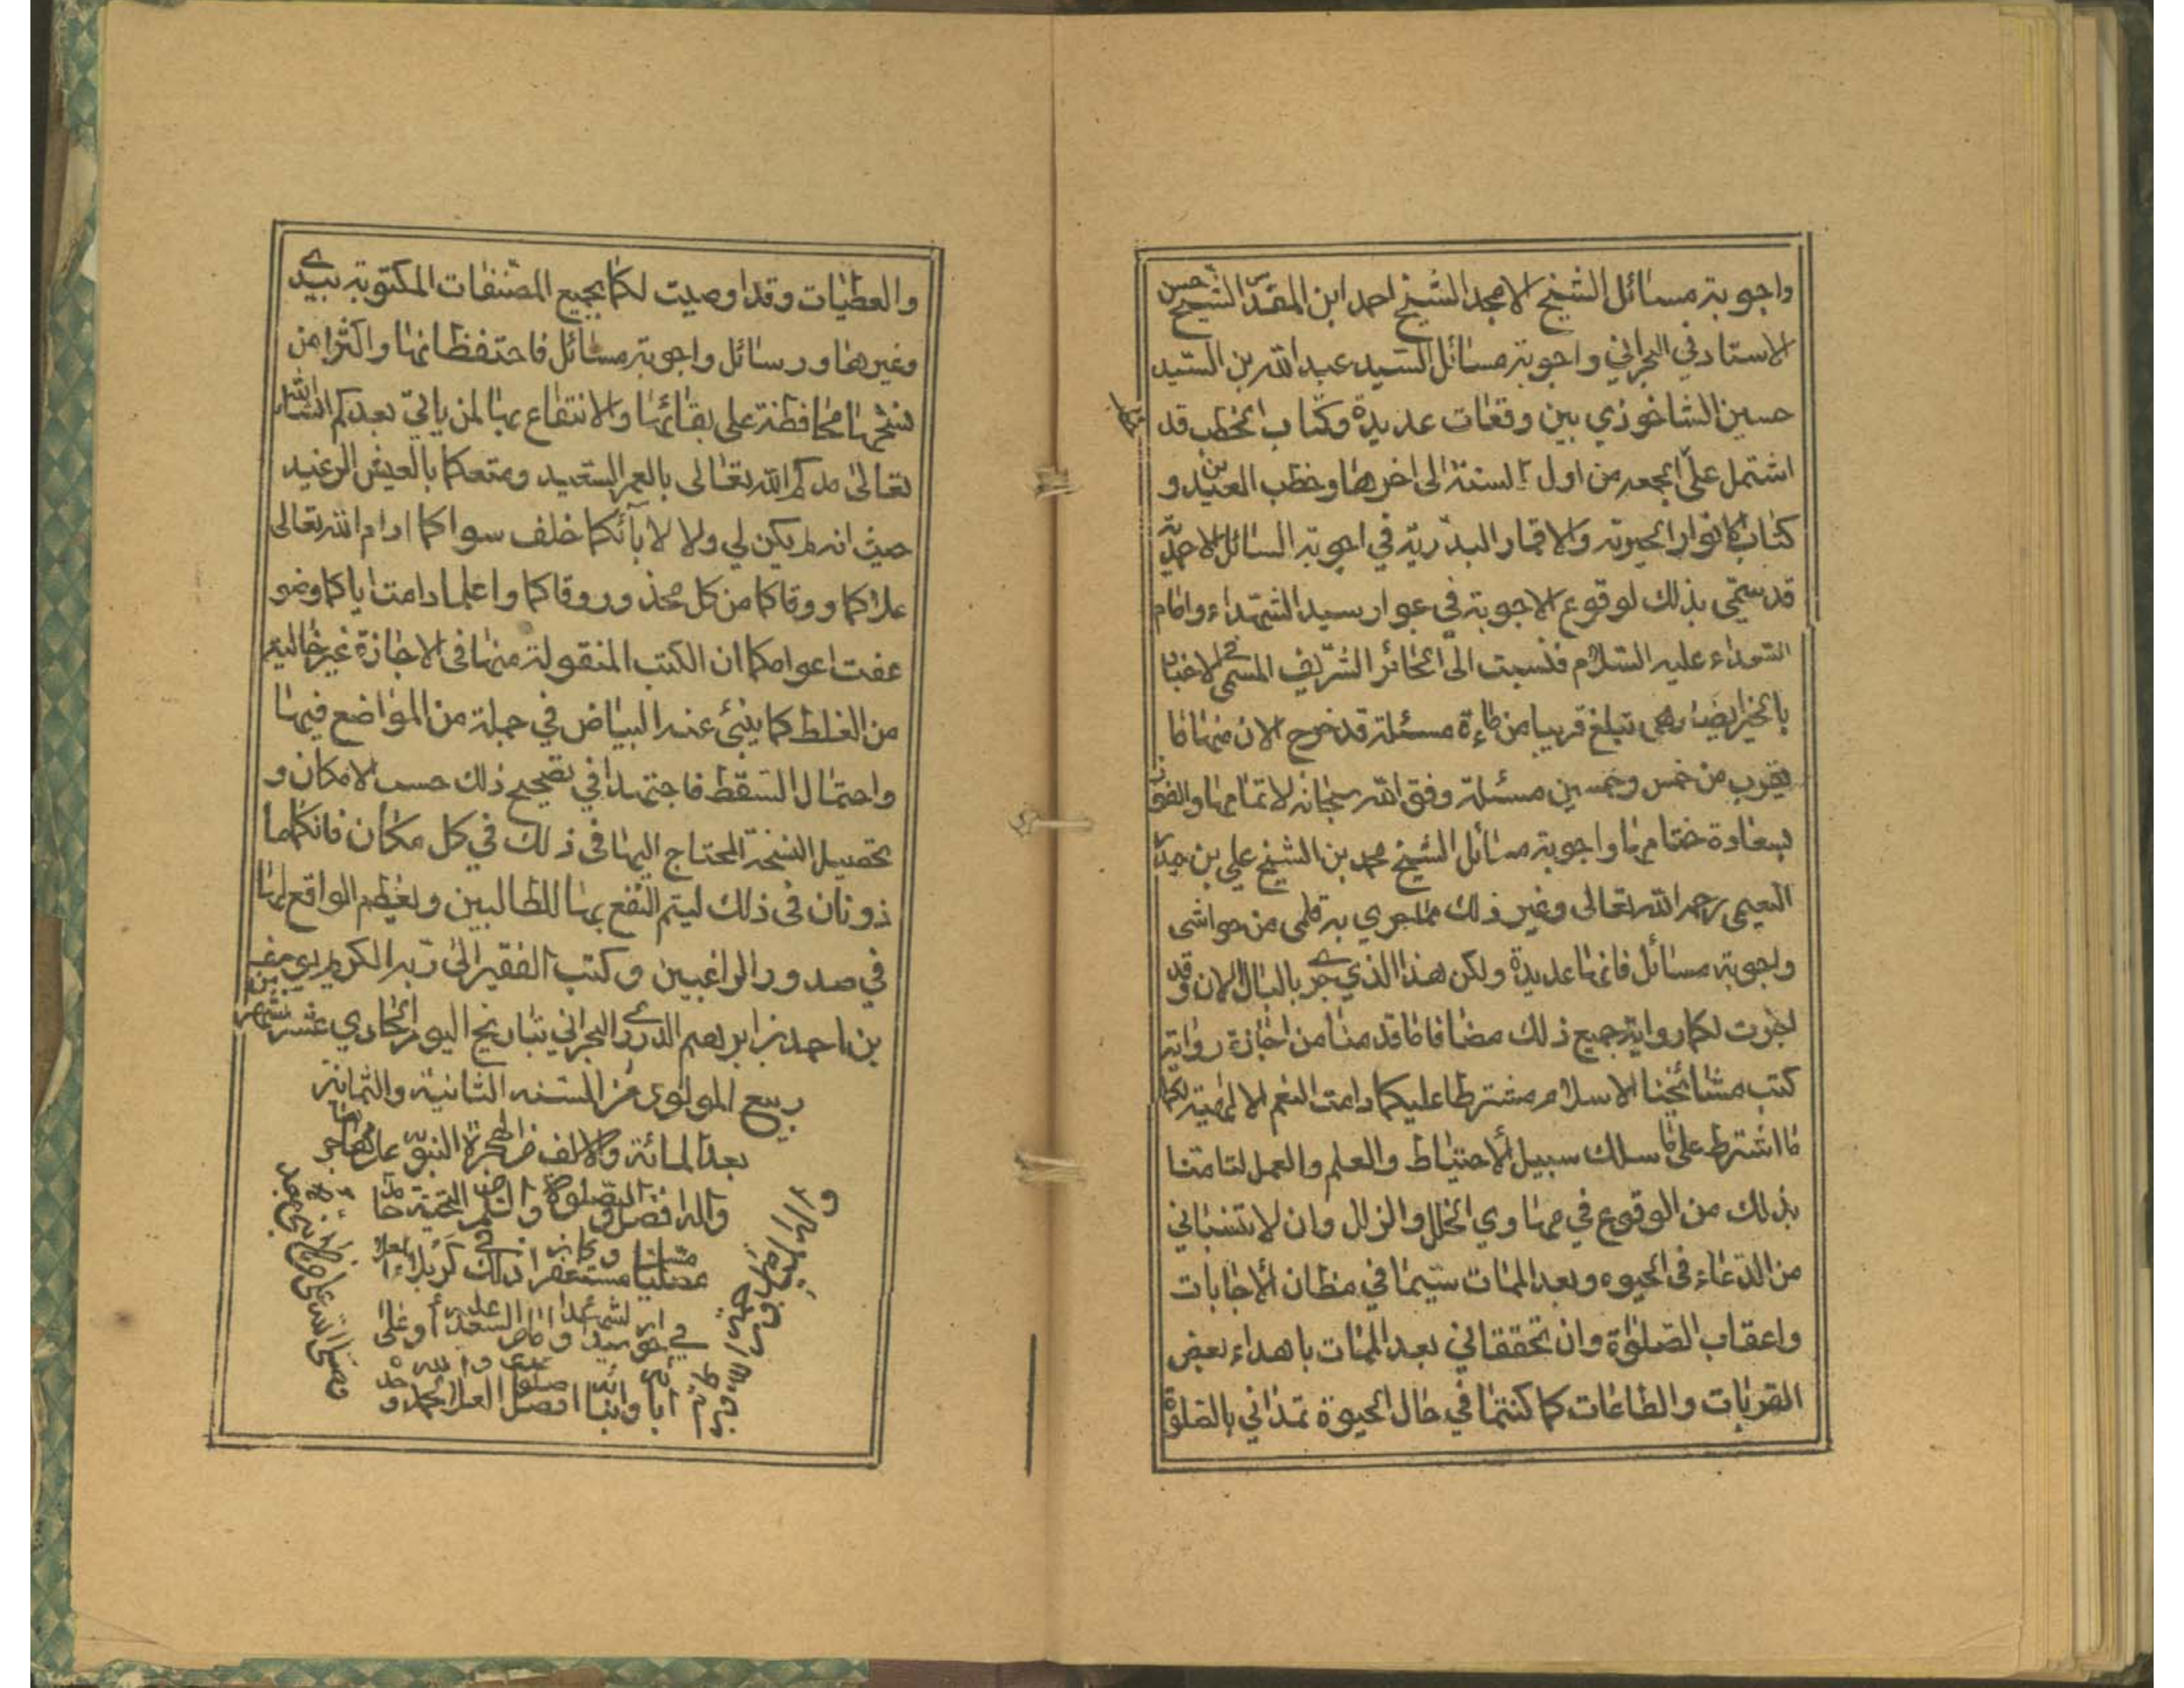 واجوبة مسائل الشيخ الامجد الشيخ احمد ابن المقدّس الشيخ حسن
الاستاد في البحراني واجوبة مسائل السيد عبد الله بن السيد
حسين الشاخوري بين وقعات عديدة وكتاب الخطب قد
اشتمل على الجمعه من اول السنة الى اخرها وخطب العيدين و
كتاب الانوار الحيرية والاقمار البدرية في اجوبة المسائل الاحمدية
قد سمّي بذلك لوقوع الاجوبة في جوار سيد الشهداء وامام
السعداء عليه السلام فنسبت الى الحائر الشريف المسمى في الاخبار
بالخير ايضا وهى تبلغ قريبا من مائة مسئلة قد خرج الان منها ما
يقرب من خمس وخمسين مسئلة وفق الله سبحانه لاتمامها والفوز
بسعادة ختامها واجوبة مسائل الشيخ محمد بن الشيخ علي بن حيدر
النعيمى رحمه الله تعالى وغير ذلك مما جرى به قلمى من حواشى
واجوبة مسائل فانها عديدة ولكن هذا الذي جرى بالبال الان وقد
اجزت لكما رواية جميع ذلك مضافا ما قدمنا من اجازة رواية
كتب مشائخنا الاسلام مشترطا عليكما دامت النعم الالهية لكما
ما اشترط على ما سلك سبيل الاحتياط والعلم والعمل لتامتنا
بذلك من الوقوع في مهاوي الخلل والزلل وان لا تنسياني
من الدعاء في الحيوه وبعد الممات سيما في مظان الاجابات
واعقاب الصلوٰة وان تحققاني بعد الممات باهداء بعض
القربات والطاعات كما كنتما في حال الحيوة تمداني بالصلوة
والعطيات وقد اوصيت لكما بجميع المصنفات المكتوبة بيدي
وغيرها ورسائل واجوبة مسائل فاحتفظا بها واكثرا من
نسخها محافظة على بقائها والانتفاع بها لمن ياتي بعدكم انشاء الله
تعالى مدكم الله تعالى بالعمر السعيد ومتعكما بالعيش الرغيد
حيث انه لم يكن لي ولا لابآئكما خلف سواكما ادام الله تعالى
علاكما ووقاكما من كل محذور ووقاكما واعلما دامت اياكما ونمو
عفت اعوامكما ان الكتب المنقولة منها في الاجازة غير خالية
من الغلط كما ينبئ عنه البياض في جملة من المواضع فيها
واحتمال السقط فاجتهدا في تصحيح ذلك حسب الامكان و
تحصيل النسخة المحتاج اليها في ذلك في كل مكان فانكما ما
ذونان في ذلك ليتم النفع بها للطالبين ويعظم الواقع لها
في صدور الراغبين وكتب الفقير الى ربه الكريم يوسف
بن احمد بن ابرهيم الدرازي البحراني بتاريخ اليوم الحادي عشر شهر
ربيع المولوى من السنه الثانية والثمانين
بعد المائة والالف من الهجرة النبوية على مهاجرها
واله افضل الصلوة والسلام والتحية حامدا
مصليا مسلما مستغفرا وكان ذلك في كربلاء المعلى
في جوار سيد الشهداء وامام السعداء عليه وعلى
ابائه وابنائه افضل صلوات